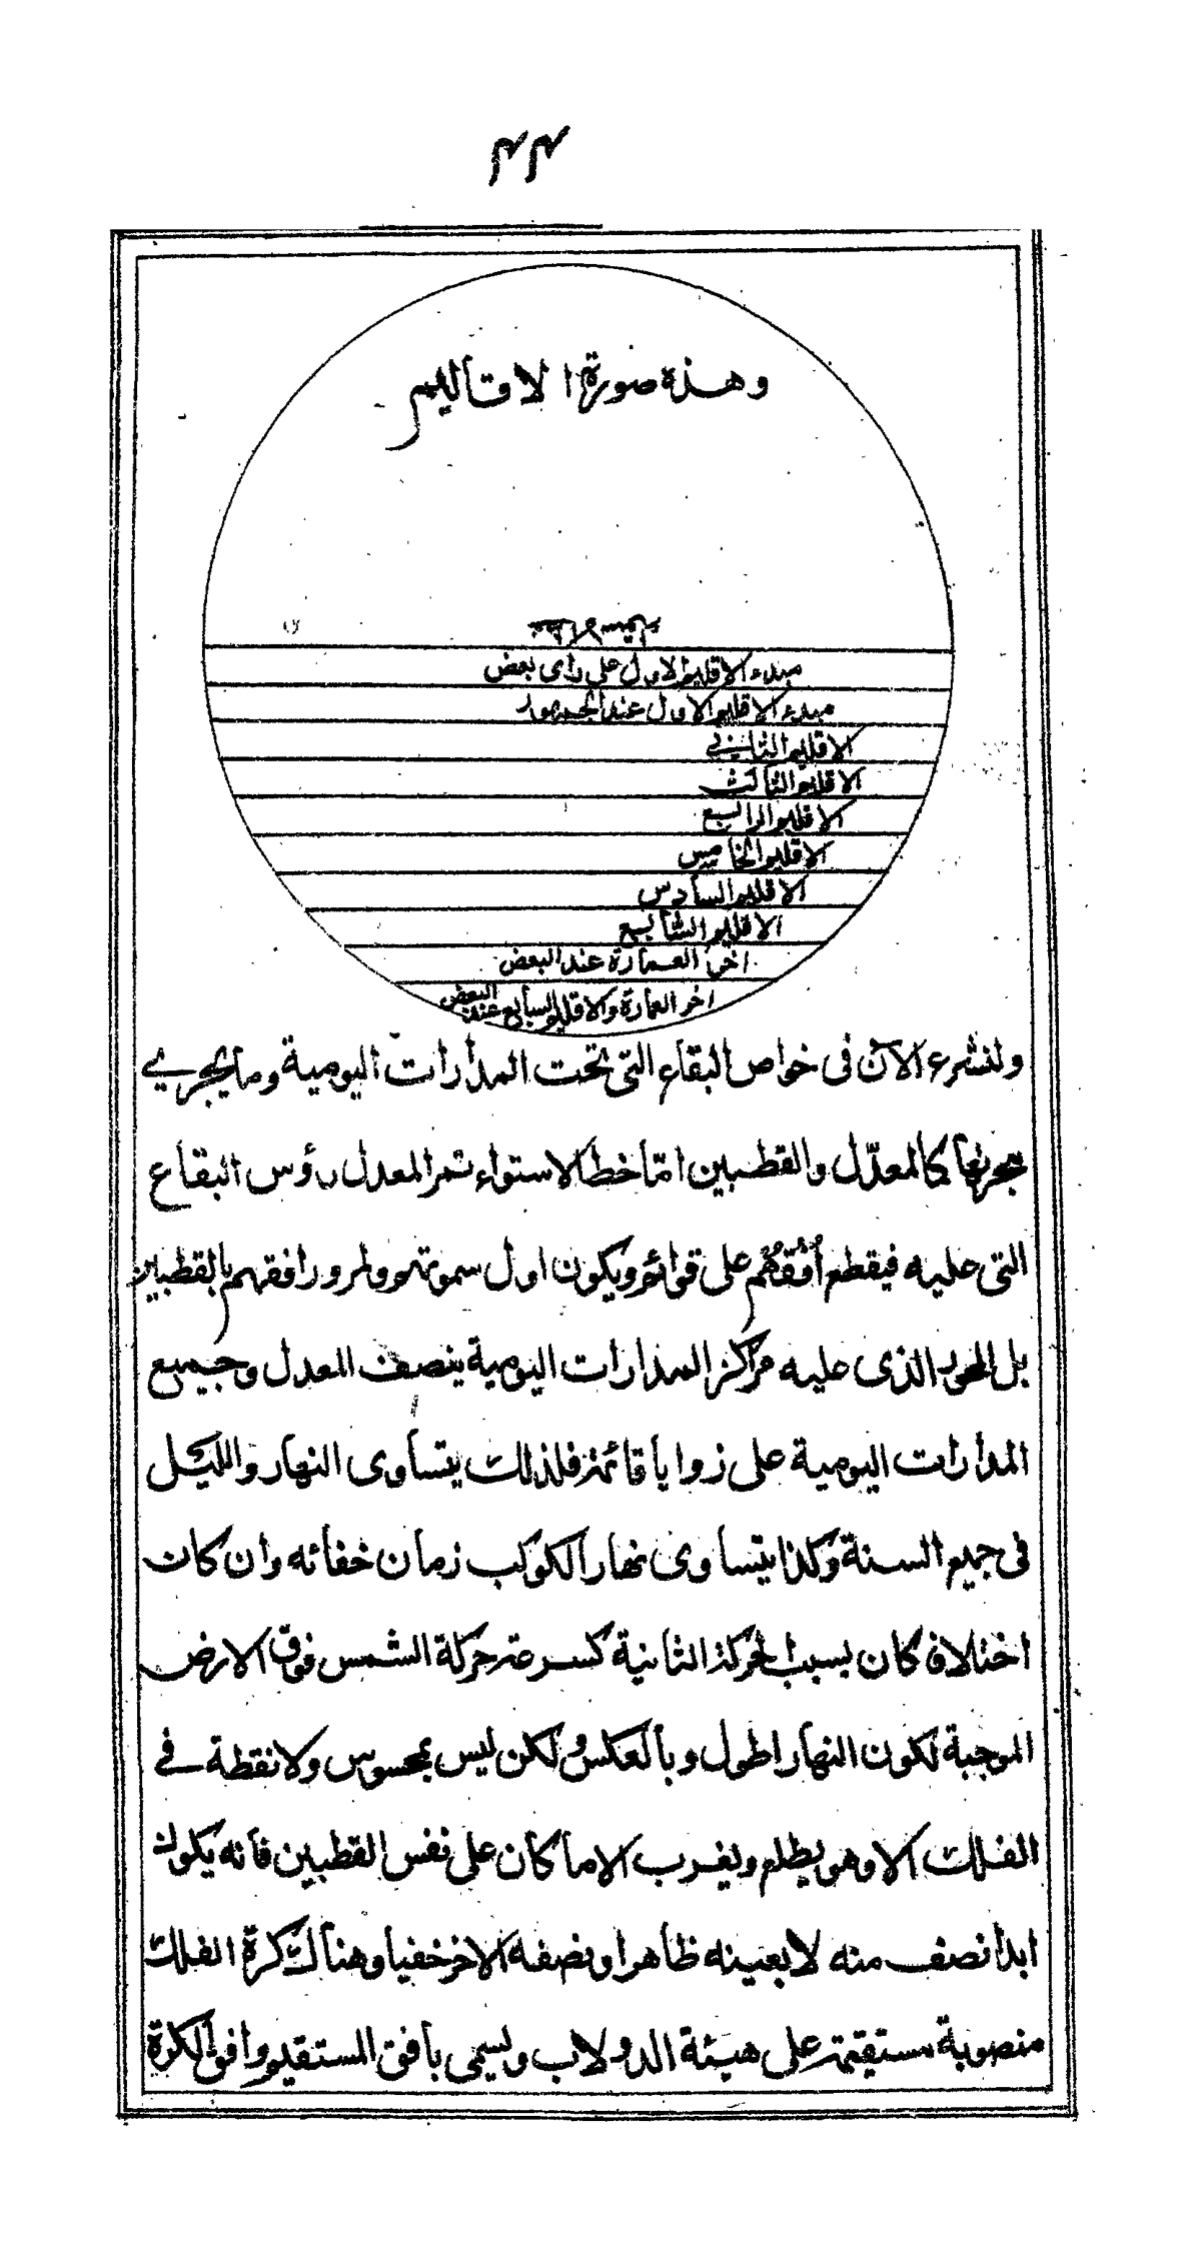 ٤٤
وهذه صورة الاقاليم
مبدء الاقليم الاول على راى بعض
مبدء الاقليم الاول عند الجمهور
الاقليم الثاني
الاقليم الثالث
الاقليم الرابع
الاقليم الخامس
الاقليم السادس
الاقليم السابع
اخر العمارة عند البعض
اخر العمارة والاقليم السابع عند البعض
ولنشرع الآن فى خواص البقاع التى تحت المدارات اليومية وما يجري
مجريها كالمعدّل والقطبين امّا خط الاستواء تمر المعدل رؤس البقاع
التى عليه فيقطع أُفُقُهُم على قوائم ويكون اول سموتهم ولمرور افقهم بالقطبين
بل المحور الذى عليه مراكز المدارات اليومية ينصف المعدل وجميع
المدارات اليومية على زوايا قائمة فلذلك يتساوى النهار والليل
فى جميع السنة وكذا يتساوى نهار الكوكب زمان خفائه وان كان
اختلاف كان بسبب الحركة الثانية كسرعة حركة الشمس فوق الارض
الموجبة لكون النهار اطول وبالعكس ولكن ليس بمحسوس ولا نقطة في
الفلك الا وهو يطلع ويغرب الا ما كان على نفس القطبين فانه يكون
ابدا نصف منه لا بعينه ظاهرا ونصفه الاخر خفيا وهناك كرة الفلك
منصوبة مستقيمة على هيئة الدولاب ويسمى بافق المستقيم وافق الكرة